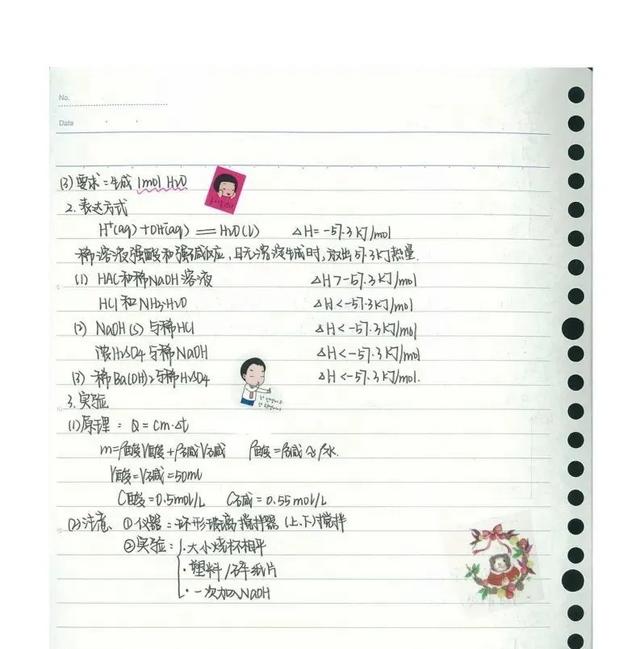 No.
Date
(3) 要求：生成 1mol H₂O
2. 表达方式
H⁺(aq) + OH⁻(aq) == H₂O(l) △H = -57.3 kJ/mol
稀溶液强酸和强碱反应，且无溶液生成时，放出57.3kJ热量.
(1) HAC和稀NaOH溶液 △H > -57.3 kJ/mol
HCl 和 NH₃·H₂O △H < -57.3 kJ/mol
(2) NaOH(s) 与稀HCl △H < -57.3 kJ/mol
浓H₂SO₄与稀NaOH △H < -57.3 kJ/mol
(3) 稀Ba(OH)₂与稀H₂SO₄ △H < -57.3 kJ/mol.
3. 实验
(1) 原理：Q = cm·△t
m = ρ酸V酸 + ρ碱V碱 ρ酸 = ρ碱 ≈ ρ水.
V酸 = V碱 = 50ml
C酸 = 0.5mol/L C碱 = 0.55mol/L
(2) 注意. ①仪器：环形玻璃搅拌器(上、下)搅拌
②实验：·大小烧杯相平
·塑料/碎纸片
·一次加入NaOH